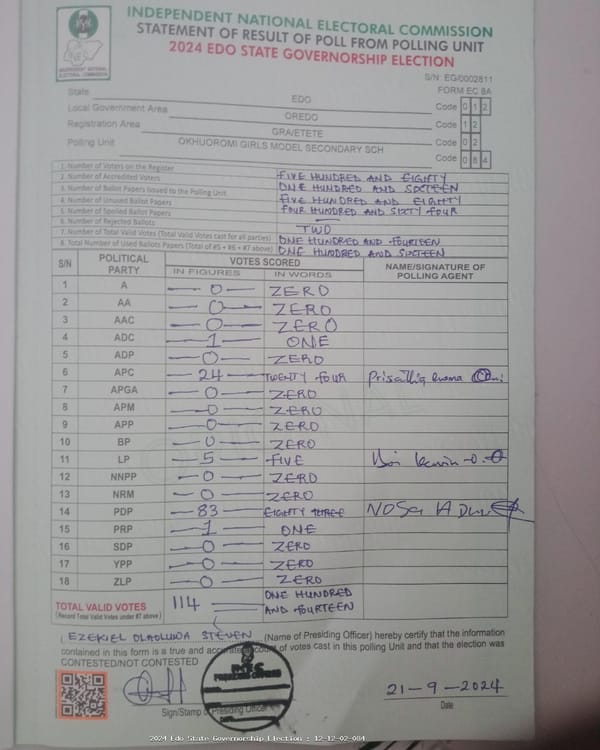 INDEPENDENT NATIONAL ELECTORAL COMMISSION
STATEMENT OF RESULT OF POLL FROM POLLING UNIT
2024 EDO STATE GOVERNORSHIP ELECTION
S/N: EG/0002811
FORM EC 8A
State EDO Code 0 1 2
Local Government Area OREDO Code 1 2
Registration Area GRA/ETETE Code 0 2
Polling Unit OKHUOROMI GIRLS MODEL SECONDARY SCH Code 0 8 4
1. Number of Voters on the Register FIVE HUNDRED AND EIGHTY
2. Number of Accredited Voters ONE HUNDRED AND SIXTEEN
3. Number of Ballot Papers Issued to the Polling Unit FIVE HUNDRED AND EIGHTY
4. Number of Unused Ballot Papers FOUR HUNDRED AND SIXTY FOUR
5. Number of Spoiled Ballot Papers —
6. Number of Rejected Ballots TWO
7. Number of Total Valid Votes (Total Valid Votes cast for all parties) ONE HUNDRED AND FOURTEEN
8. Total Number of Used Ballots Papers (Total of #5 + #6 + #7 above) ONE HUNDRED AND SIXTEEN
S/N POLITICAL PARTY VOTES SCORED NAME/SIGNATURE OF POLLING AGENT
IN FIGURES IN WORDS
1 A 0 ZERO
2 AA 0 ZERO
3 AAC 0 ZERO
4 ADC 1 ONE
5 ADP 0 ZERO
6 APC 24 TWENTY FOUR
7 APGA 0 ZERO
8 APM 0 ZERO
9 APP 0 ZERO
10 BP 0 ZERO
11 LP 5 FIVE
12 NNPP 0 ZERO
13 NRM 0 ZERO
14 PDP 83 EIGHTY THREE NOSA
15 PRP 1 ONE
16 SDP 0 ZERO
17 YPP 0 ZERO
18 ZLP 0 ZERO
TOTAL VALID VOTES 114 ONE HUNDRED AND FOURTEEN
(Record Total Valid Votes under #7 above)
I, EZEKIEL OLAOLUWA STEVEN (Name of Presiding Officer) hereby certify that the information
contained in this form is a true and accurate account of votes cast in this polling Unit and that the election was
CONTESTED/NOT CONTESTED
INEC
PRESIDING OFFICER
21-9-2024
Sign/Stamp of Presiding Officer
Date
2024 Edo State Governorship Election : 12-12-02-084